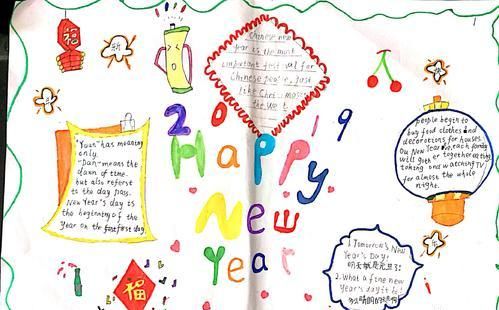 福
新
Chinese new
year is the most
important festival for
Chinese people, just
like Christmas in
the west
2019
Happy
New
Year
"Yuan" has meaning
only.
"Dan" means the
dawn of time.
but also referst
to the day pass.
New Year's day is
the beginning of the
Year on the first day.
people begin to
buy food clothes and
decorations for houses
On New Year Eve, each family
will goth er together eating
talking and watching TV
for almost the whole
night.
福
1. Tomorrow's New
Year's Day!
明天就是元旦了!
2. What a fine new
Year's day it is!